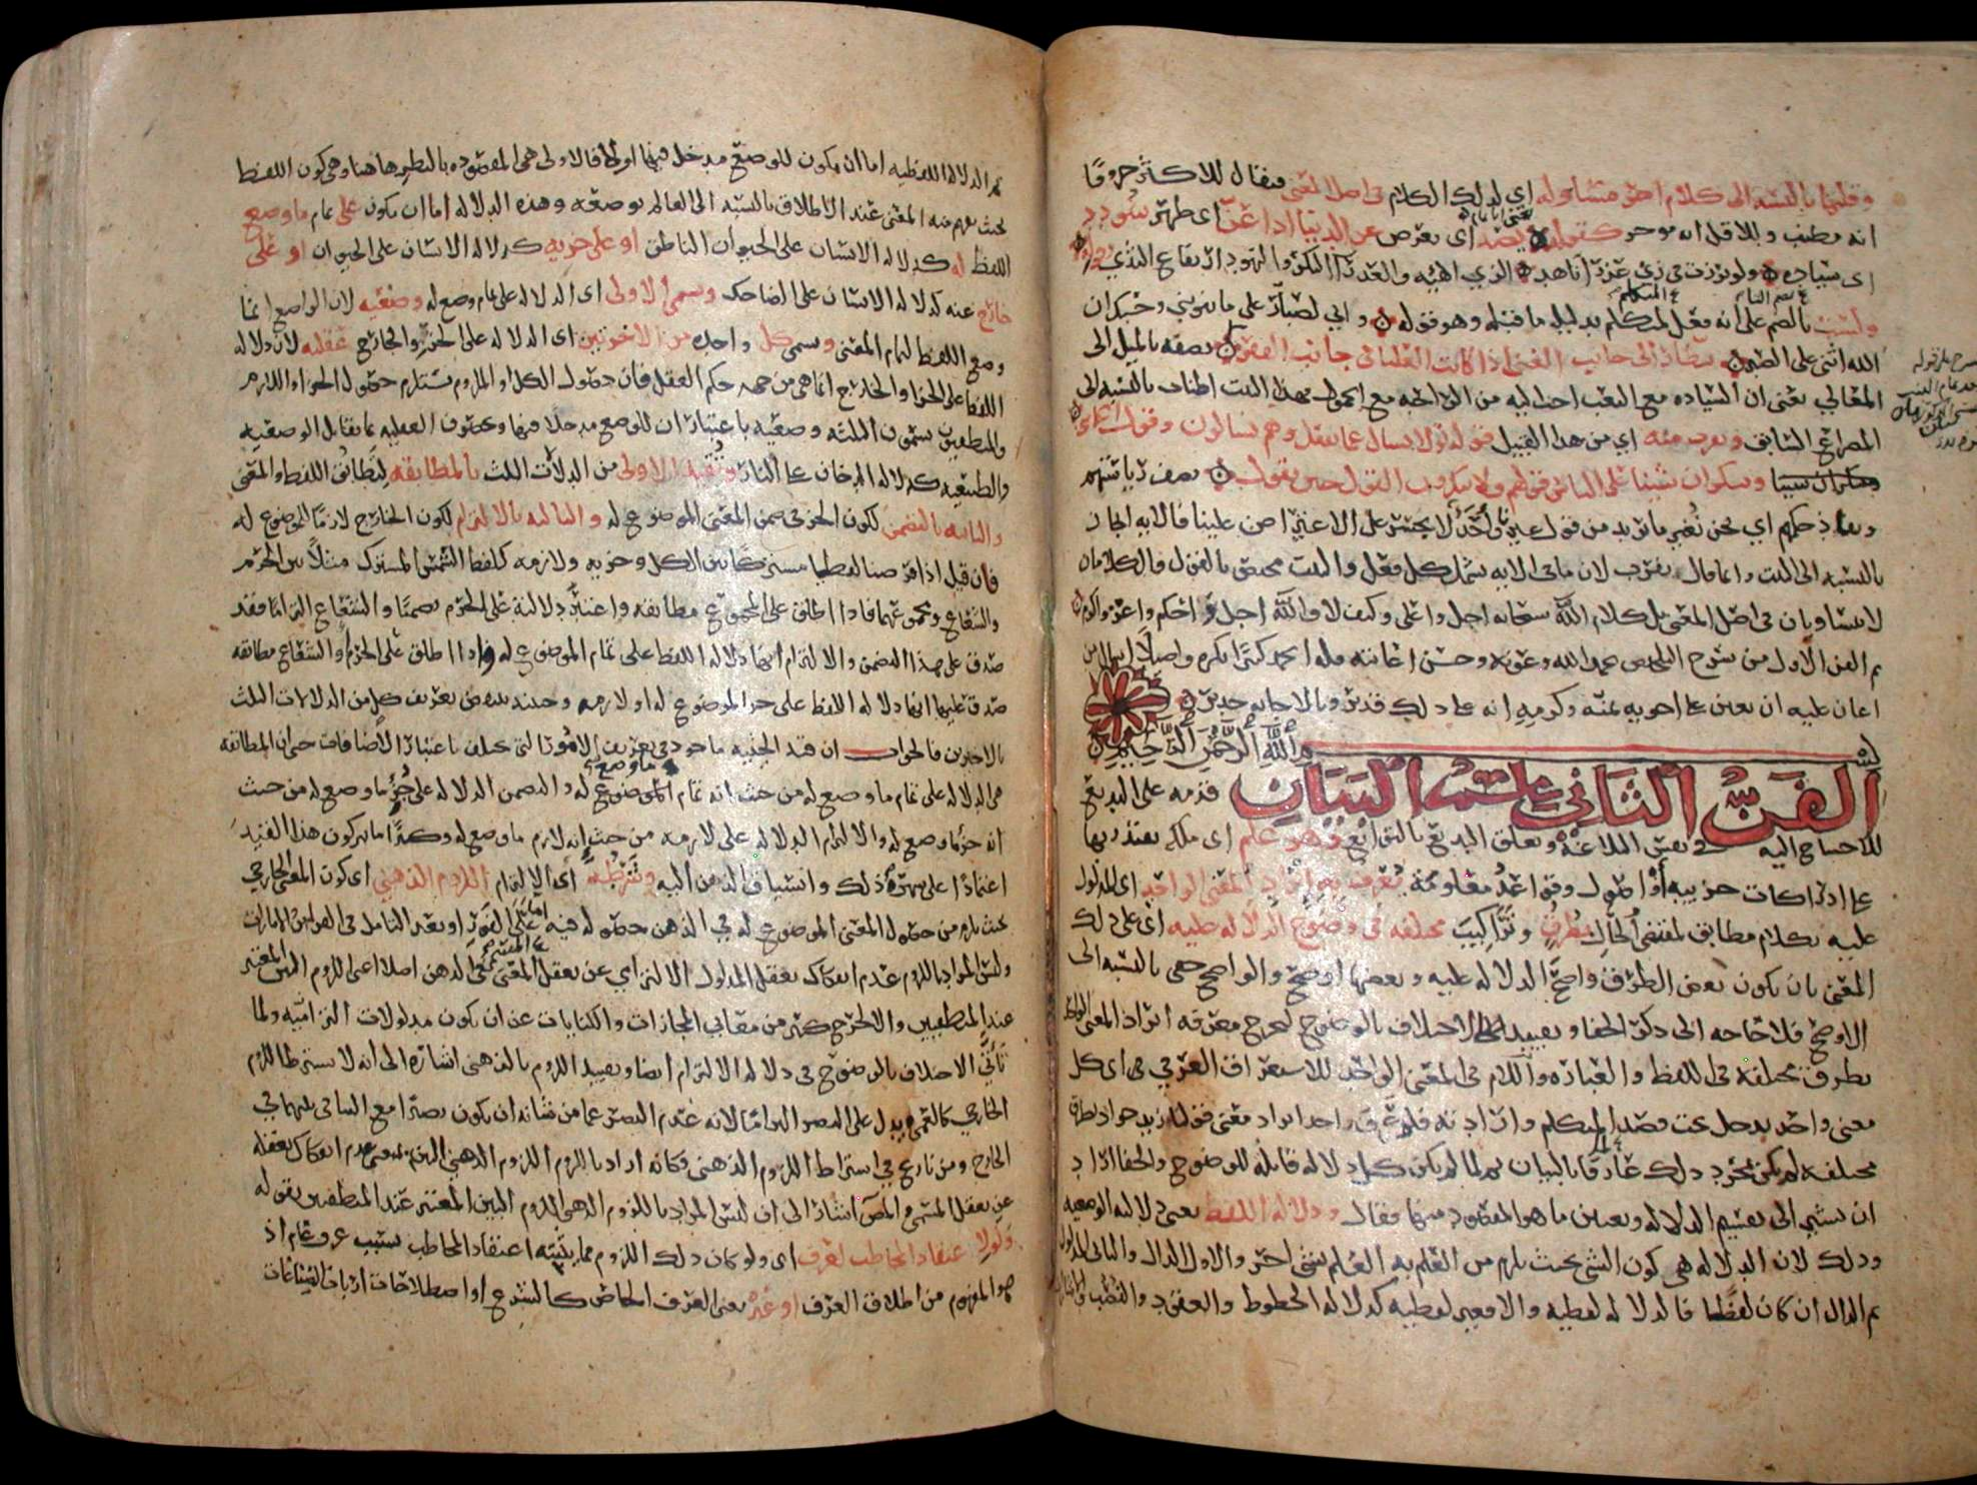 وقلتها بالنسبه الى كلام اخر مساو له اي لذلك الكلام فى اصل المعنى فيقال للاكثر حروفا
انه مطنب وللاقل انه موجز كقوله يصد اى يعرض عن الدنيا اذا عن اى ظهر سودد
اى سياده ولو برزت فى زي عذرآ ناهد الزي الهيئه والعذرآ البكر والنهود ارتفاع الثدي وقوله
ولست بالضم على انه فعل المتكلم بدليل ما قبله وهو قوله واني لصبار على ما ينوبني وحسبك ان
الله اثنى على الصبر بنظار الى جانب الغنى اذا كانت العليآ فى جانب الفقر يصفه بالميل الى
المعالي يعنى ان السياده مع التعب احب اليه من الراحه مع الخمول فهذا البيت اطناب بالنسبه الى
المصراع السابق ويقرب منه اي من هذا القبيل قوله تع لا يسال عما يفعل وهم يسالون وقول الحماسي
وننكر ان شينا على الناس قولهم ولا ينكرون القول حين نقول يصف رياستهم
ونفاذ حكمهم اي نحن نغير ما نريد من قول غيرنا ولا احد لا يجسر على الاعتراض علينا فالايه ايجاز
بالنسبه الى البيت وانما قال يقرب لان ما فى الايه يشمل كل فعل والبيت مختص بالقول فالكلامان
لا يتساويان فى اصل المعنى بل كلام الله سبحانه اجل واعلى وكيف لا والله اجل واحكم واعز واكرم
تم الفن الاول من شرح التلخيص بحمد الله وعونه وحسن اعانته فله الحمد كثيرا بكرة واصيلا
اعان عليه ان يعين على اخويه بمنه وكرمه انه على ذلك قدير وبالاجابه جدير
بسم الله الرحمن الرحيم
الفن الثاني علم البيان قدمه على البديع
للاحتياج اليه فى نفس البلاغة وتعلق البديع بالتوابع وهو علم اى ملكه يقتدر بها
على ادراكات جزييه أو اصول وقواعد معلومة يعرف به ايراد المعنى الواحد اى المدلول
عليه بكلام مطابق لمقتضى الحال بطرق وتراكيب مختلفه فى وضوح الدلاله عليه اى على ذلك
المعنى بان يكون بعض الطرق واضح الدلاله عليه وبعضها اوضح والواضح خفى بالنسبه الى
الاوضح فلا حاجه الى ذكر الخفا وتقييد الاختلاف بالوضوح ليخرج معرفه ايراد المعنى الواحد
بطرق مختلفه فى اللفظ والعباره واللام فى المعنى الواحد للاستغراق العرفي اى كل
معنى واحد يدخل تحت قصد المتكلم وارادته فلو عرف واحد ايراد معنى قولنا زيد جواد بطرق
مختلفه لم يكن بمجرد ذلك عارفا بالبيان ثم لما لم يكن كل دلاله قابلة للوضوح والخفا اراد
ان يشير الى تقسيم الدلاله وتعيين ما هو المقصود منها فقال ودلاله اللفظ يعنى دلالته الوضعيه
وذلك لان الدلاله هى كون الشي بحيث يلزم من العلم به العلم بشى اخر والاول الدال والثانى المدلول
ثم الدال ان كان لفظا فالدلاله لفظيه والا فغير لفظيه كدلاله الخطوط والعقود والنصب والاشارات
ثم الدلاله اللفظيه اما ان يكون للوضع مدخل فيها او لا فالاولى هى المقصوده بالنظر هاهنا وهى كون اللفظ
بحيث يفهم منه المعنى عند الاطلاق بالنسبه الى العالم بوضعه وهذه الدلاله اما ان يكون على تمام ما وضع
اللفظ له كدلاله الانسان على الحيوان الناطق او على جزيه كدلاله الانسان على الحيوان او على
خارج عنه كدلاله الانسان على الضاحك وتسمى الاولى اى الدلاله على تمام ما وضع له وضعيه لان الواضع انما
وضع اللفظ لتمام المعنى ويسمى كل واحده من الاخرتين اى الدلاله على الجزؤ والخارج عقليه لان دلاله
اللفظ على الجزؤ والخارج انما هى من جهه حكم العقل فان حصول الكل او الملزوم يستلزم حصول الجزؤ او اللازم
والمنطقيون يسمون الثلثه وضعيه باعتبار ان للوضع مدخلا فيها ويخصون العقليه بما يقابل الوضعيه
والطبيعيه كدلاله الدخان على النار وتقيد الاولى من الدلالات الثلث بالمطابقه لتطابق اللفظ والمعنى
والثانيه بالتضمن لكون الجزؤ فى ضمن المعنى الموضوع له والثالثه بالالتزام لكون الخارج لازما للموضوع له
فان قيل اذا فرضنا لفظا مشتركا بين الكل وجزيه ولازمه كلفظ الشمس المشترك مثلا بين الجرم
والشعاع ومجموعهما فاذا اطلق على المجموع مطابقه واعتبر دلالته على الجرم تضمنا والشعاع التزاما فقد
صدق على هذا التضمن والالتزام انها دلاله اللفظ على تمام الموضوع له واذا اطلق على الجرم او الشعاع مطابقه
صدق عليها انها دلاله اللفظ على جزؤ الموضوع له او لازمه وحينيذ ينتقض تعريف كل من الدلالات الثلث
بالاخريين فالجواب ان قيد الحيثيه ماخوذ فى تعريف الامور التى تختلف باعتبار الاضافات حتى ان المطابقه
هى الدلاله على تمام ما وضع له من حيث انه تمام الموضوع له والتضمن الدلاله على جزؤ ما وضع له من حيث
انه جزؤ ما وضع له والالتزام الدلاله على لازمه من حيث انه لازم ما وضع له وكثيرا ما يتركون هذا القيد
اعتمادا على شهرة ذلك وانسياق الذهن اليه وشرطه أى الالتزام اللزوم الذهني اى كون المعنى الخارجي
بحيث يلزم من حصول المعنى الموضوع له في الذهن حصوله فيه اما على الفور او بعد التامل فى القراين والامارات
وليس المراد باللزوم عدم انفكاك تعقل المدلول الالتزامي عن تعقل المسمى فى الذهن اصلا اعنى اللزوم البين المعتبر
عند المنطقيين والا لخرج كثير من معاني المجازات والكنايات عن ان يكون مدلولات التزاميه ولما
تأتي الاختلاف بالوضوح فى دلاله الالتزام ايضا وتقييد اللزوم بالذهنى اشاره الى انه لا يشترط اللزوم
الخارجي كالعمى يدل على البصر التزاما لانه عدم البصر عما من شانه ان يكون بصيرا مع التنافى بينهما في
الخارج ومن نازع فى اشتراط اللزوم الذهنى فكانه اراد باللزوم اللزوم الذهني البين بمعنى عدم انفكاك تعقله
عن تعقل المسمى والمص اشار الى ان ليس المراد باللزوم الذهنى اللزوم البين المعتبر عند المنطقيين بقوله
ولولا عتقاد المخاطب لعرف اى ولو كان ذلك اللزوم مما يثبته اعتقاد المخاطب بسبب عرف عام اذ
هو المفهوم من اطلاق العرف او غيره يعنى العرف الخاص كالشرع او اصطلاحات ارباب الصناعات